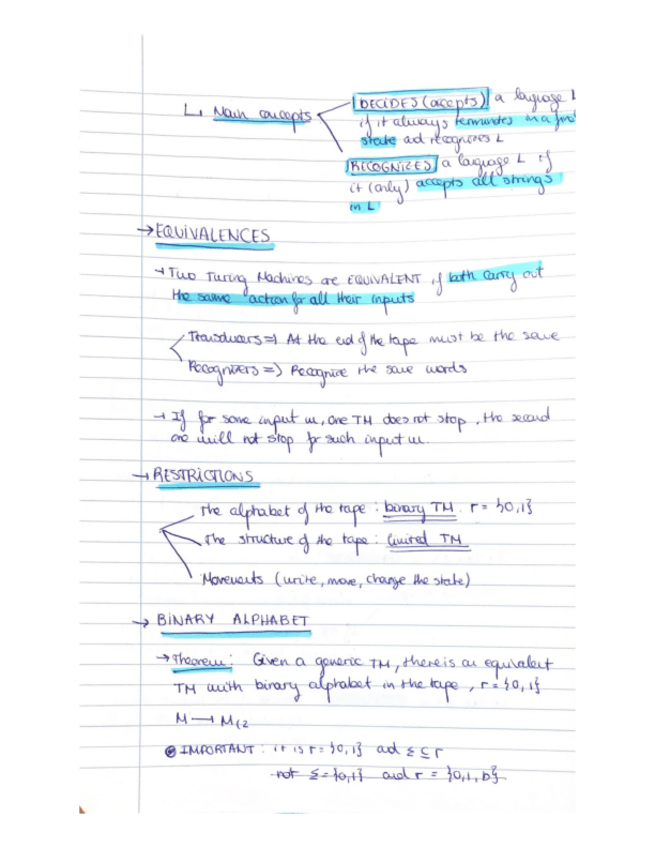 ↳ Main concepts
DECIDES (accepts) a language L
if it always terminates in a final
state and recognizes L
RECOGNIZES a language L if
it (only) accepts all strings
in L
→ EQUIVALENCES
→ Two Turing Machines are EQUIVALENT if both carry out
the same action for all their inputs
Transducers => At the end of the tape must be the same
Recognizers => Recognize the same words
→ If for some input w, one TM does not stop, the second
one will not stop for such input w.
→ RESTRICTIONS
The alphabet of the tape: binary TM. Γ = {0,1}
The structure of the tape: limited TM
Movements (write, move, change the state)
→ BINARY ALPHABET
→ Theorem: Given a generic TM, there is an equivalent
TM with binary alphabet in the tape, Γ = {0,1}
M → M(2
IMPORTANT: it is Γ = {0,1} and Σ ⊆ Γ
not Σ = {0,1} and Γ = {0,1,b}